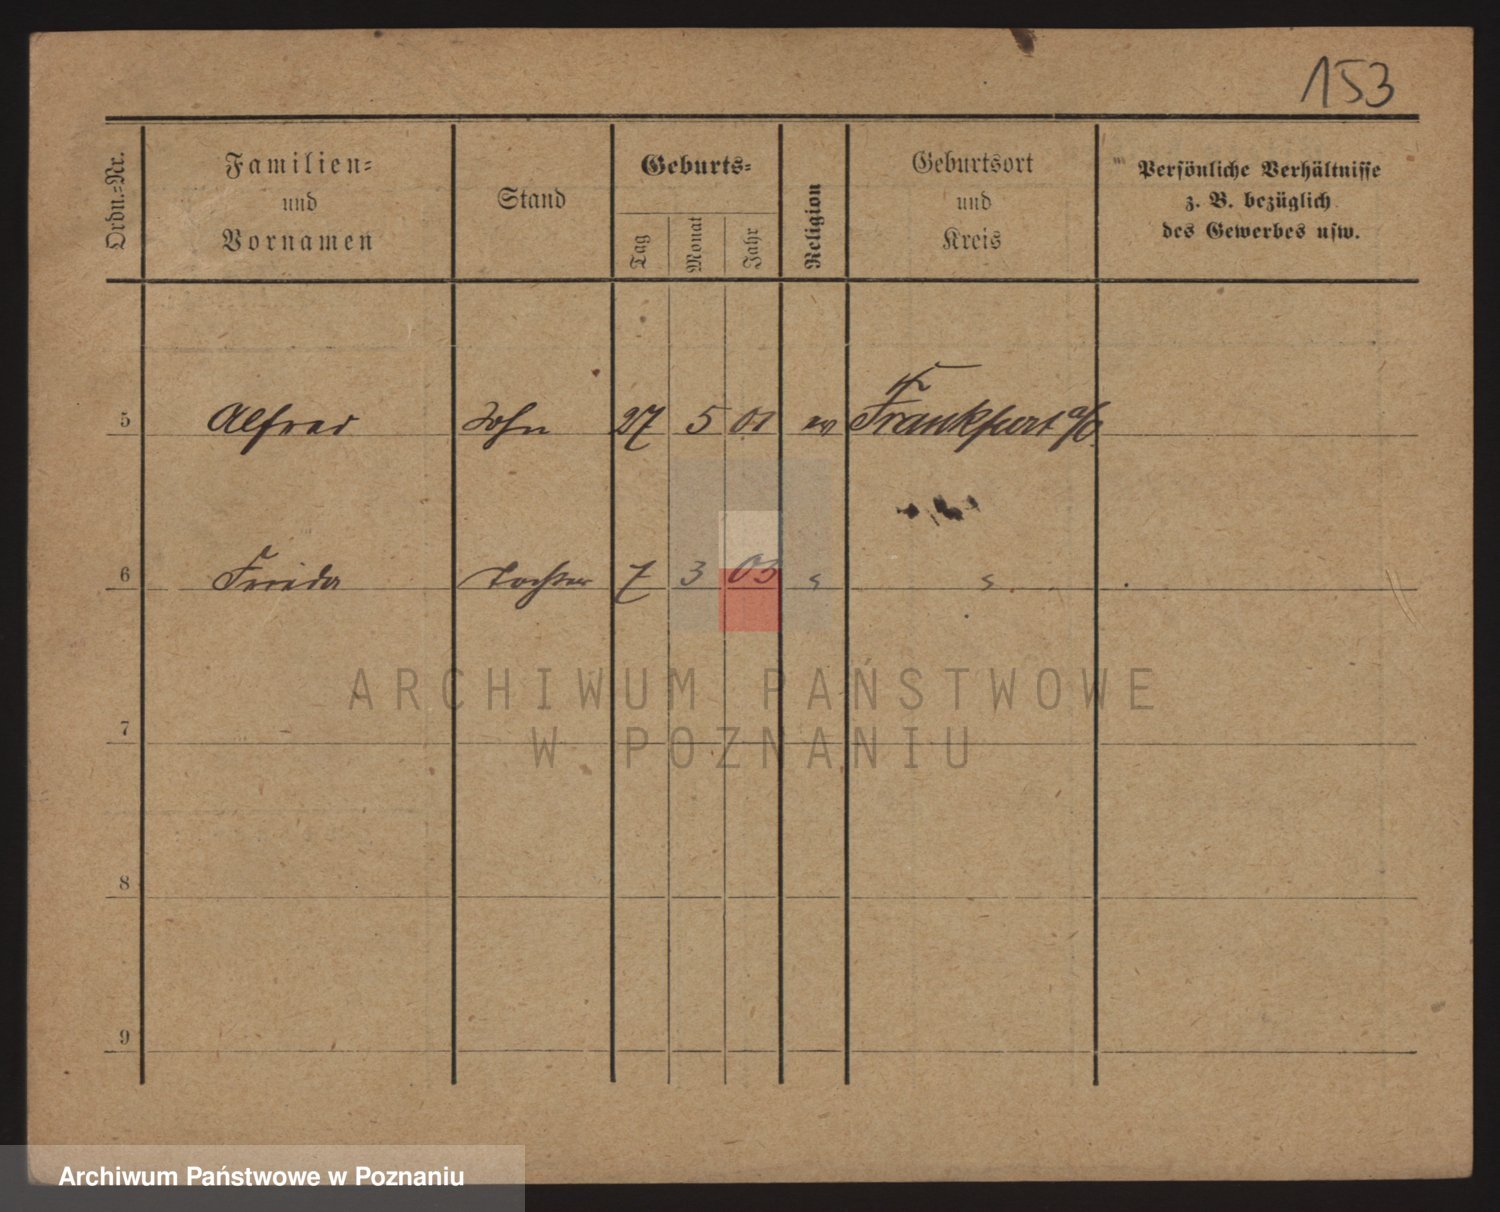 153
Ordn.-Nr.
Familien-
und
Vornamen
Stand
Geburts-
Tag
Monat
Jahr
Religion
Geburtsort
und
Kreis
Persönliche Verhältnisse
z. B. bezüglich
des Gewerbes usw.
5 Alfred Sohn 27 5 01 ev Frankfurt a/O
6 Frieda Tochter 7 3 03 s s
7
8
9
ARCHIWUM PAŃSTWOWE
W POZNANIU
Archiwum Państwowe w Poznaniu